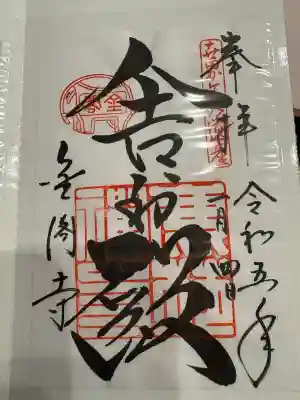 奉拝
令和五年
一月四日
舎利殿
金閣寺